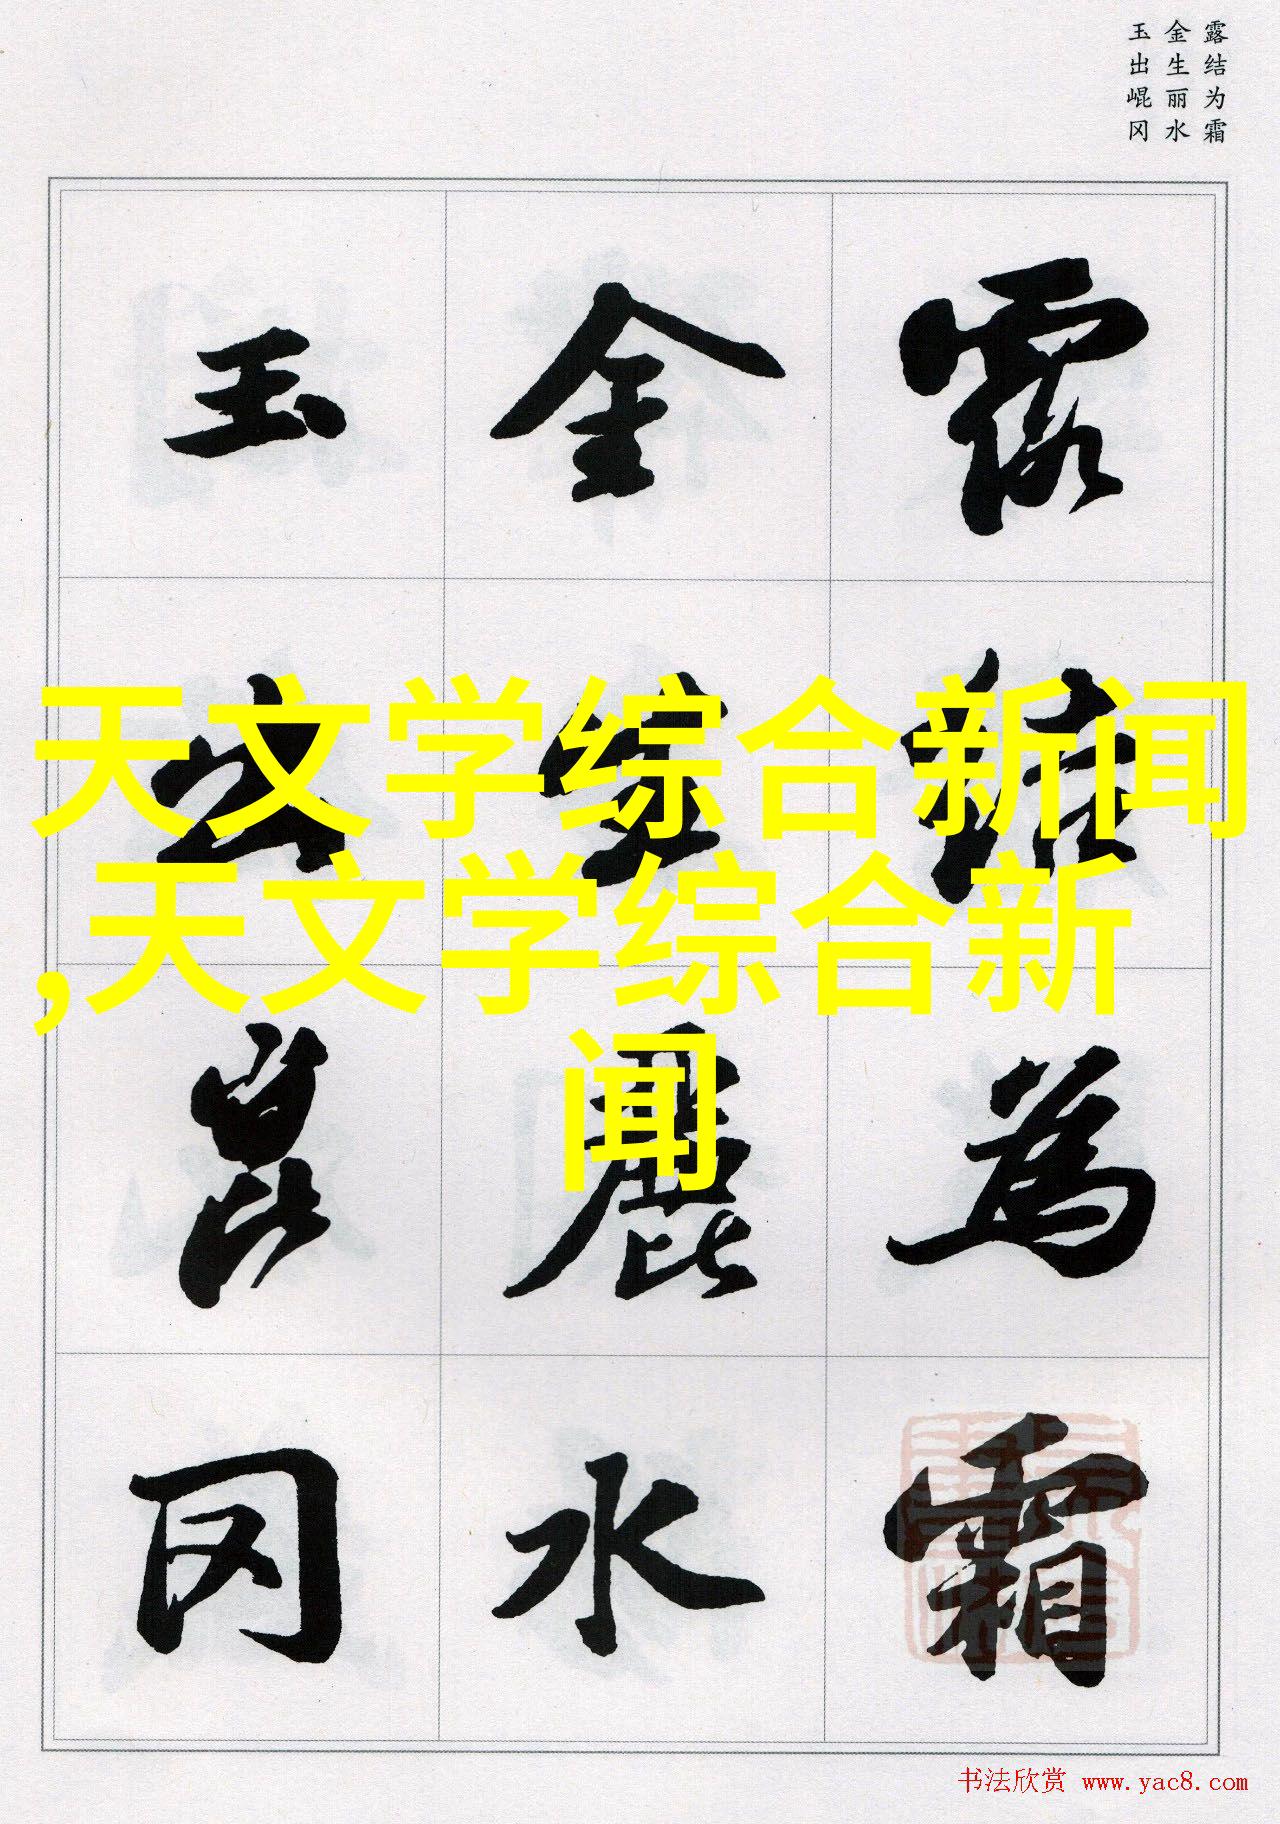 露结为霜
金生丽水
玉出崐冈
露結為霜
金生麗水
玉出崑冈
天文学综合新闻
,天文学综合新
闻
书法欣赏 www.yac8.com